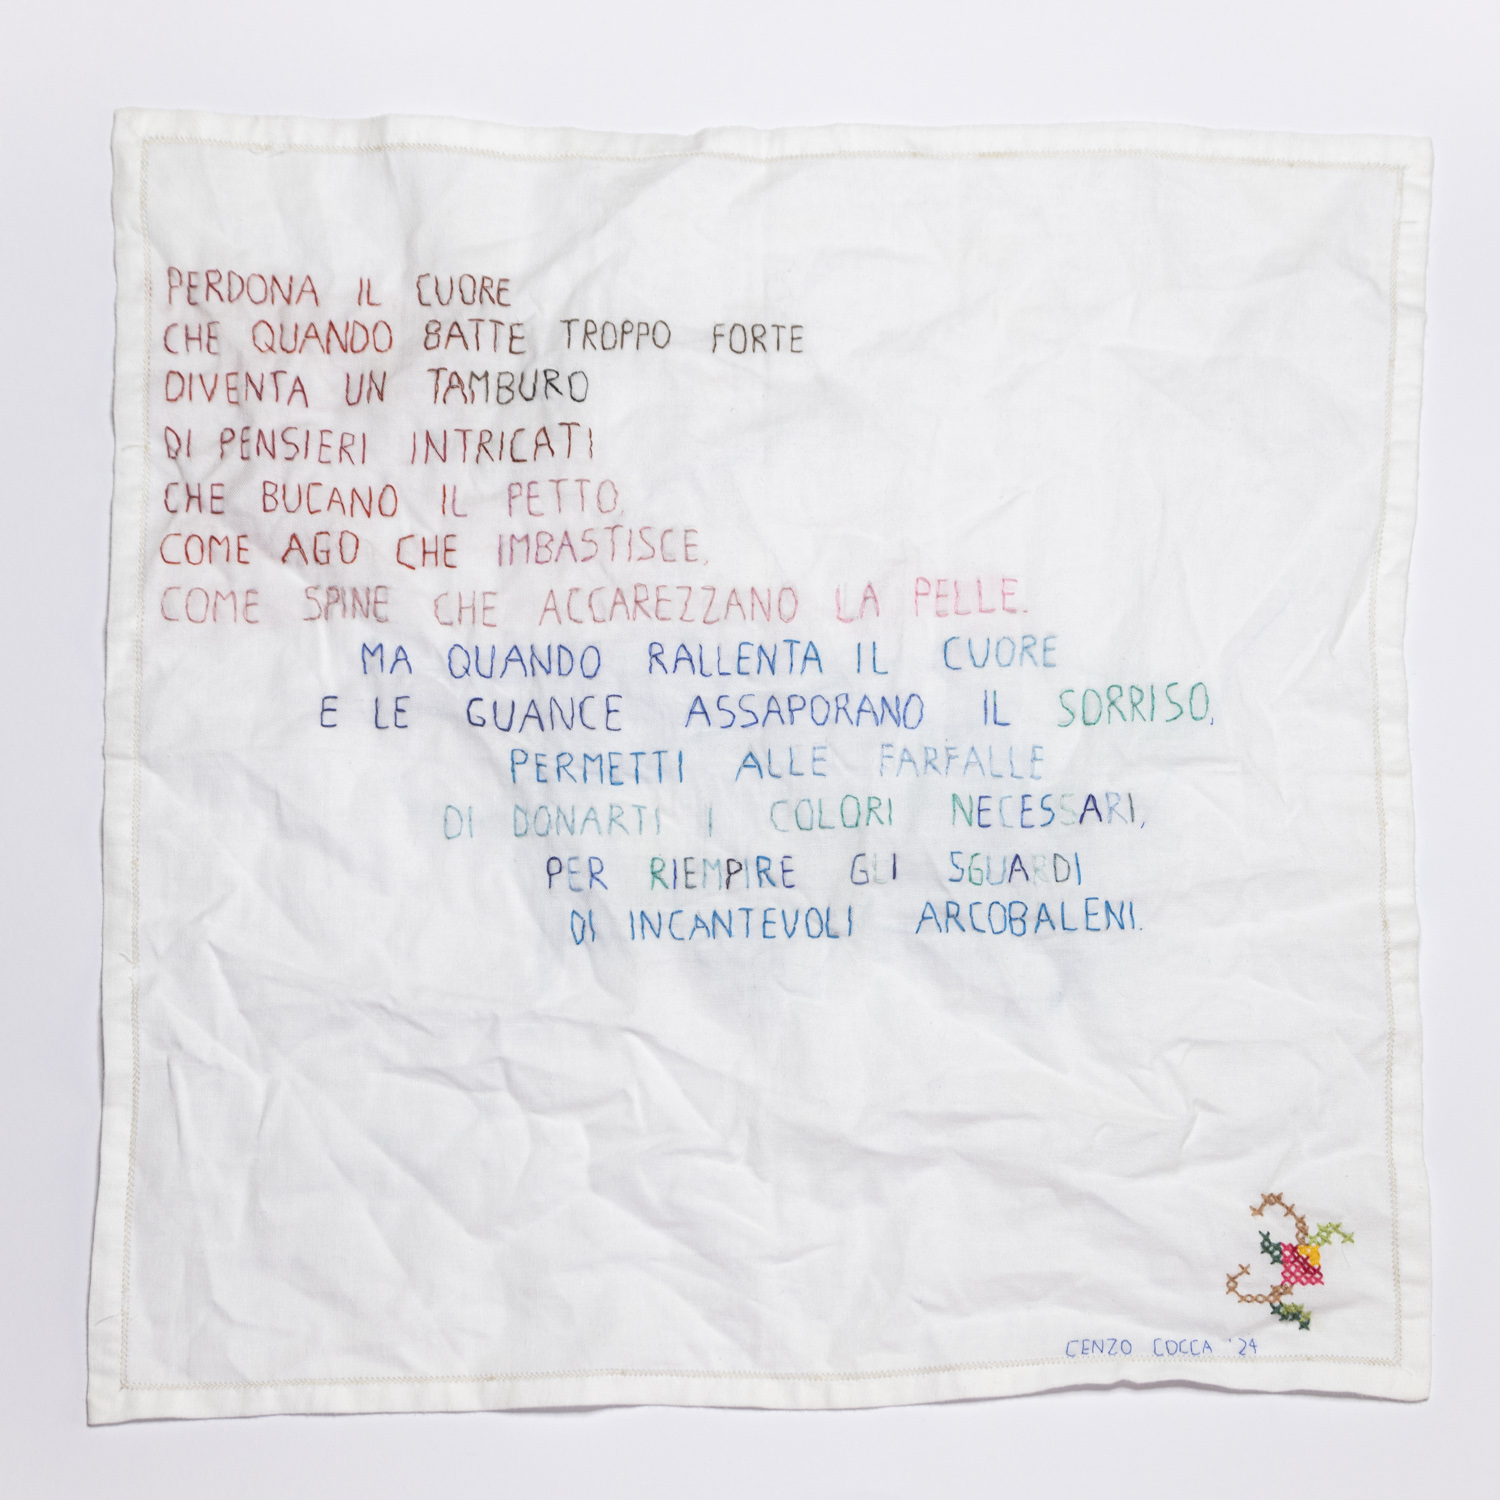 PERDONA IL CUORE
CHE QUANDO BATTE TROPPO FORTE
DIVENTA UN TAMBURO
DI PENSIERI INTRICATI
CHE BUCANO IL PETTO,
COME AGO CHE IMBASTISCE,
COME SPINE CHE ACCAREZZANO LA PELLE.
MA QUANDO RALLENTA IL CUORE
E LE GUANCE ASSAPORANO IL SORRISO,
PERMETTI ALLE FARFALLE
DI DONARTI I COLORI NECESSARI,
PER RIEMPIRE GLI SGUARDI
DI INCANTEVOLI ARCOBALENI.
CENZO COCCA '24